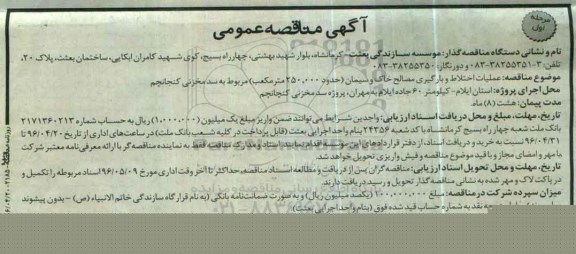 مرحله اول
آگهی مناقصه عمومی
نام و نشانی دستگاه مناقصه گذار: موسسه سازندگی بعثت-کرمانشاه، بلوار شهید بهشتی، چهارراه بسیج، کوی شهید کامران ابکایی، ساختمان بعثت، پلاک ۲۰،
تلفن: ۳-۳۸۲۵۵۳۵۱-۰۸۳ و دورنگار: ۳۸۲۵۵۳۵۰-۰۸۳
موضوع مناقصه: عملیات اختلاط و بارگیری مصالح خاک و سیمان (حدود ۲۵۰،۰۰۰ مترمکعب) مربوط به سد مخزنی کنجانچم
محل اجرای پروژه: استان ایلام - کیلومتر ۶۰ جاده ایلام به مهران، پروژه سد مخزنی کنجانچم
مدت پیمان: هشت (۸) ماه.
تاریخ، مهلت، مبلغ و محل دریافت اسناد ارزیابی: واجدین شرایط می توانند ضمن واریز مبلغ یک میلیون (۱،۰۰۰،۰۰۰) ریال به حساب شماره ۲۱۷۱۳۶۰۲۱۳
بانک ملت شعبه چهارراه بسیج کرمانشاه با کد شعبه ۲۴۲۵۶ بنام واحد اجرایی بعثت (قابل پرداخت در کلیه شعب بانک ملت) در ساعت های اداری از تاریخ ۹۶/۰۴/۲۰ تا
۹۶/۰۴/۳۱ نسبت به خرید و دریافت اسناد، از دفتر قراردادهای این موسسه اقدام نمایند. اسناد و مدارک مناقصه فقط به نماینده مناقصه گر با ارائه معرفی نامه معتبر شرکت
با مهر و امضای مجاز و با قید موضوع مناقصه و فیش واریزی تحویل خواهد شد.
تاریخ، مهلت و محل تحویل اسناد ارزیابی: مناقصه گران پس از دریافت و مطالعه اسناد مناقصه، حداکثر تا آخر وقت اداری مورخ ۹۶/۰۵/۰۹ اسناد مربوطه را تکمیل و
در پاکت لاک و مهر شده به نشانی مناقصه گذار تحویل و رسید دریافت دارند.
میزان سپرده شرکت در مناقصه: مبلغ ۱۰۰،۰۰۰،۰۰۰ (یکصد میلیون ریال) و به صورت ضمانت نامه بانکی (به نام قرارگاه سازندگی خاتم الانبیاء (ص) - بدون پیوند
وجه نقد به شماره حساب قید شده فوق (بنام واحد اجرایی بعثت)